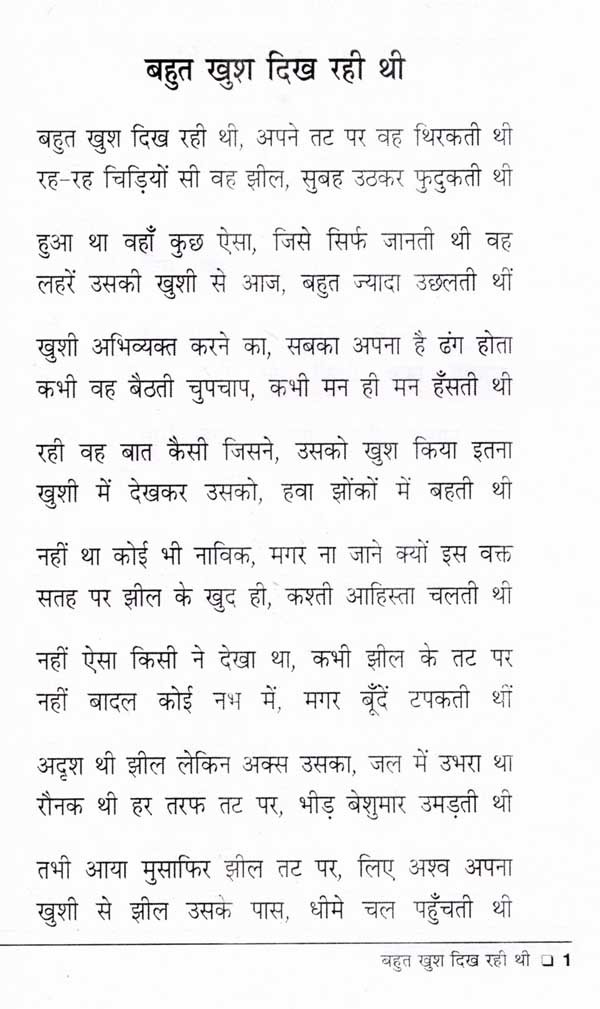 बहुत खुश दिख रही थी
बहुत खुश दिख रही थी, अपने तट पर वह थिरकती थी
रह-रह चिड़ियों सी वह झील, सुबह उठकर फुदुकती थी
हुआ था वहाँ कुछ ऐसा, जिसे सिर्फ जानती थी वह
लहरें उसकी खुशी से आज, बहुत ज्यादा उछलती थीं
खुशी अभिव्यक्त करने का, सबका अपना है ढंग होता
कभी वह बैठती चुपचाप, कभी मन ही मन हँसती थी
रही वह बात कैसी जिसने, उसको खुश किया इतना
खुशी में देखकर उसको, हवा झोंकों में बहती थी
नहीं था कोई भी नाविक, मगर ना जाने क्यों इस वक्त
सतह पर झील के खुद ही, कश्ती आहिस्ता चलती थी
नहीं ऐसा किसी ने देखा था, कभी झील के तट पर
नहीं बादल कोई नभ में, मगर बूँदें टपकती थीं
अदृश थी झील लेकिन अक्स उसका, जल में उभरा था
रौनक थी हर तरफ तट पर, भीड़ बेशुमार उमड़ती थी
तभी आया मुसाफिर झील तट पर, लिए अश्व अपना
खुशी से झील उसके पास, धीमे चल पहुँचती थी
बहुत खुश दिख रही थी ❑ 1